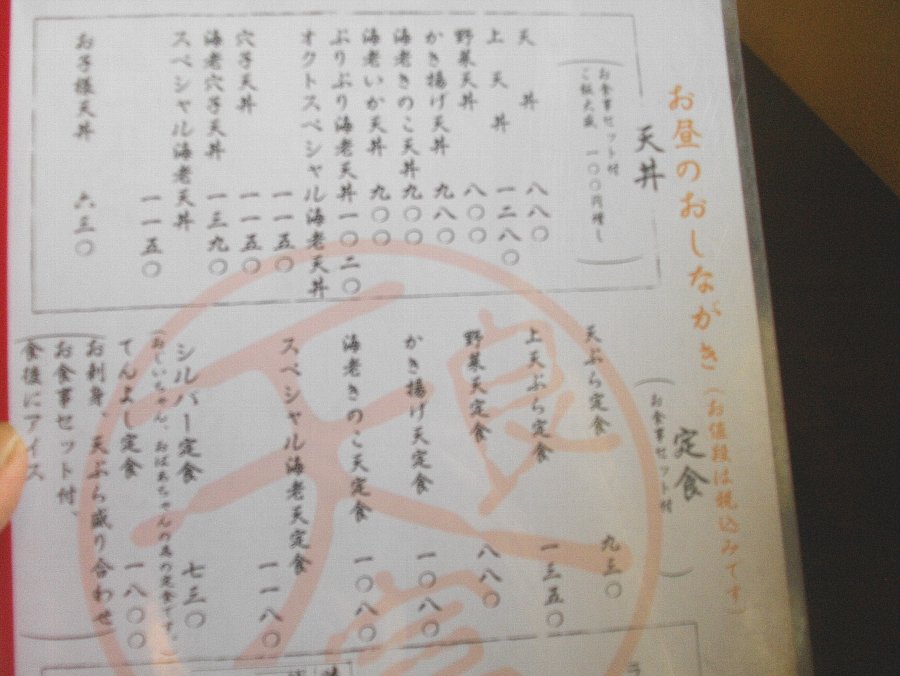 お昼のおしながき（お値段は税込みです）
天丼
（お食事セット付
ご飯大盛 一〇〇円増し）
天丼 八八〇
上天丼 一二八〇
野菜天丼 八〇〇
かき揚げ天丼 九八〇
海老きのこ天丼 九〇〇
海老いか天丼 九〇〇
ぷりぷり海老天丼 一〇二〇
オクトスペシャル海老天丼
一一五〇
穴子天丼 一一五〇
海老穴子天丼 一三九〇
スペシャル海老天丼
一一五〇
お子様天丼 六三〇
定食
（お食事セット付）
天ぷら定食 九三〇
上天ぷら定食 一三五〇
野菜天定食 八八〇
かき揚げ天定食 一〇八〇
海老きのこ天定食 一〇八〇
スペシャル海老天定食
一一八〇
シルバー定食 七三〇
（おじいちゃん、おばあちゃんの為の定食です。）
てんよし定食 一八〇〇
（お刺身、天ぷら盛り合わせ
お食事セット付、
食後にアイス）
天良